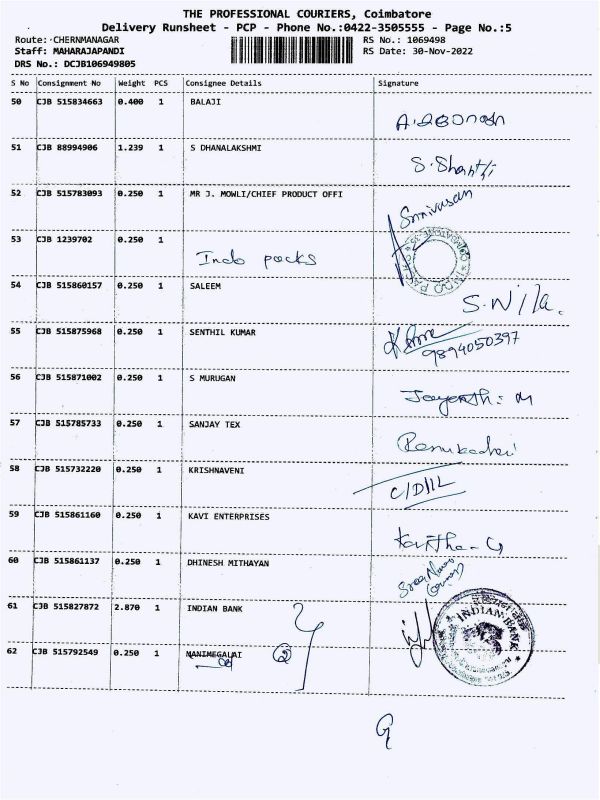 THE PROFESSIONAL COURIERS, Coimbatore
Delivery Runsheet - PCP - Phone No.:0422-3505555 - Page No.:5
Route: CHERNMANAGAR RS No.: 1069498
Staff: MAHARAJAPANDI RS Date: 30-Nov-2022
DRS No.: DCJB106949805
S No Consignment No Weight PCS Consignee Details Signature
50 CJB 515834663 0.400 1 BALAJI
51 CJB 88994906 1.239 1 S DHANALAKSHMI S. Shanthi
52 CJB 515783093 0.250 1 MR J. MOWLI/CHIEF PRODUCT OFFI Srinivasan
53 CJB 1239702 0.250 1 Indo packs
54 CJB 515860157 0.250 1 SALEEM S. Nila.
55 CJB 515875968 0.250 1 SENTHIL KUMAR 9894050397
56 CJB 515871002 0.250 1 S MURUGAN
57 CJB 515785733 0.250 1 SANJAY TEX
58 CJB 515732220 0.250 1 KRISHNAVENI
59 CJB 515861160 0.250 1 KAVI ENTERPRISES Kavitha - G
60 CJB 515861137 0.250 1 DHINESH MITHAYAN
61 CJB 515827872 2.870 1 INDIAN BANK INDIAN BANK
62 CJB 515792549 0.250 1 MANIMEGALAI 2